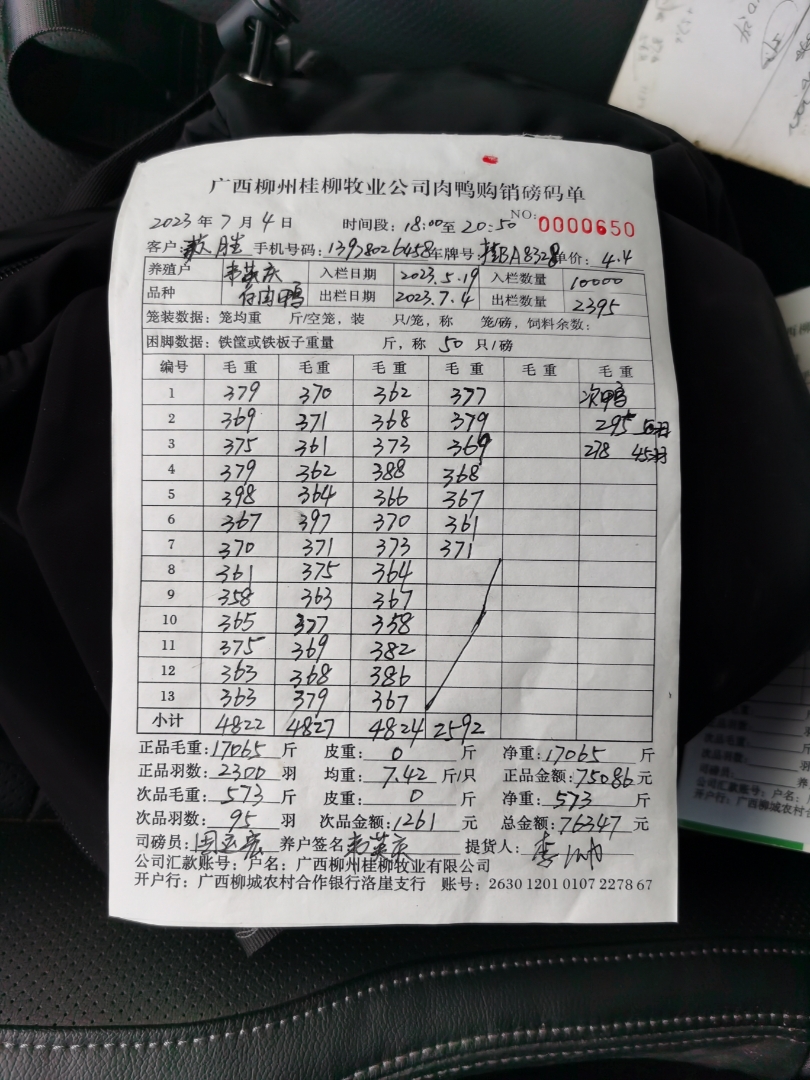 广西柳州桂柳牧业公司肉鸭购销磅码单
2023年7月4日 时间段：18:00至20:50 NO: 0000650
客户： 胜 手机号码：13978026458 车牌号：桂BA8328 单价：4.4
养殖户 入栏日期 2023.5.19 入栏数量 10000
品种 白肉鸭 出栏日期 2023.7.4 出栏数量 2395
笼装数据：笼均重 斤/空笼，装 只/笼，称 笼/磅，饲料余数：
困脚数据：铁筐或铁板子重量 斤，称 50 只/磅
编号 毛重 毛重 毛重 毛重 毛重 毛重
1 379 370 362 377 次鸭
2 369 371 368 379 295 50羽
3 375 361 373 369 278 45羽
4 379 362 388 368
5 398 364 366 367
6 367 397 370 361
7 370 371 373 371
8 361 375 364
9 358 363 367
10 365 377 358
11 375 369 382
12 363 368 386
13 363 379 367
小计 4822 4827 4824 2592
正品毛重：17065斤 皮重：0斤 净重：17065斤
正品羽数：2300羽 均重：7.42斤/只 正品金额：75086元
次品毛重：573斤 皮重：0斤 净重：573斤
次品羽数：95羽 次品金额：1261元 总金额：76347元
司磅员： 养户签名 提货人：
公司汇款账号：户名：广西柳州桂柳牧业有限公司
开户行：广西柳城农村合作银行洛崖支行 账号：2630 1201 0107 2278 67